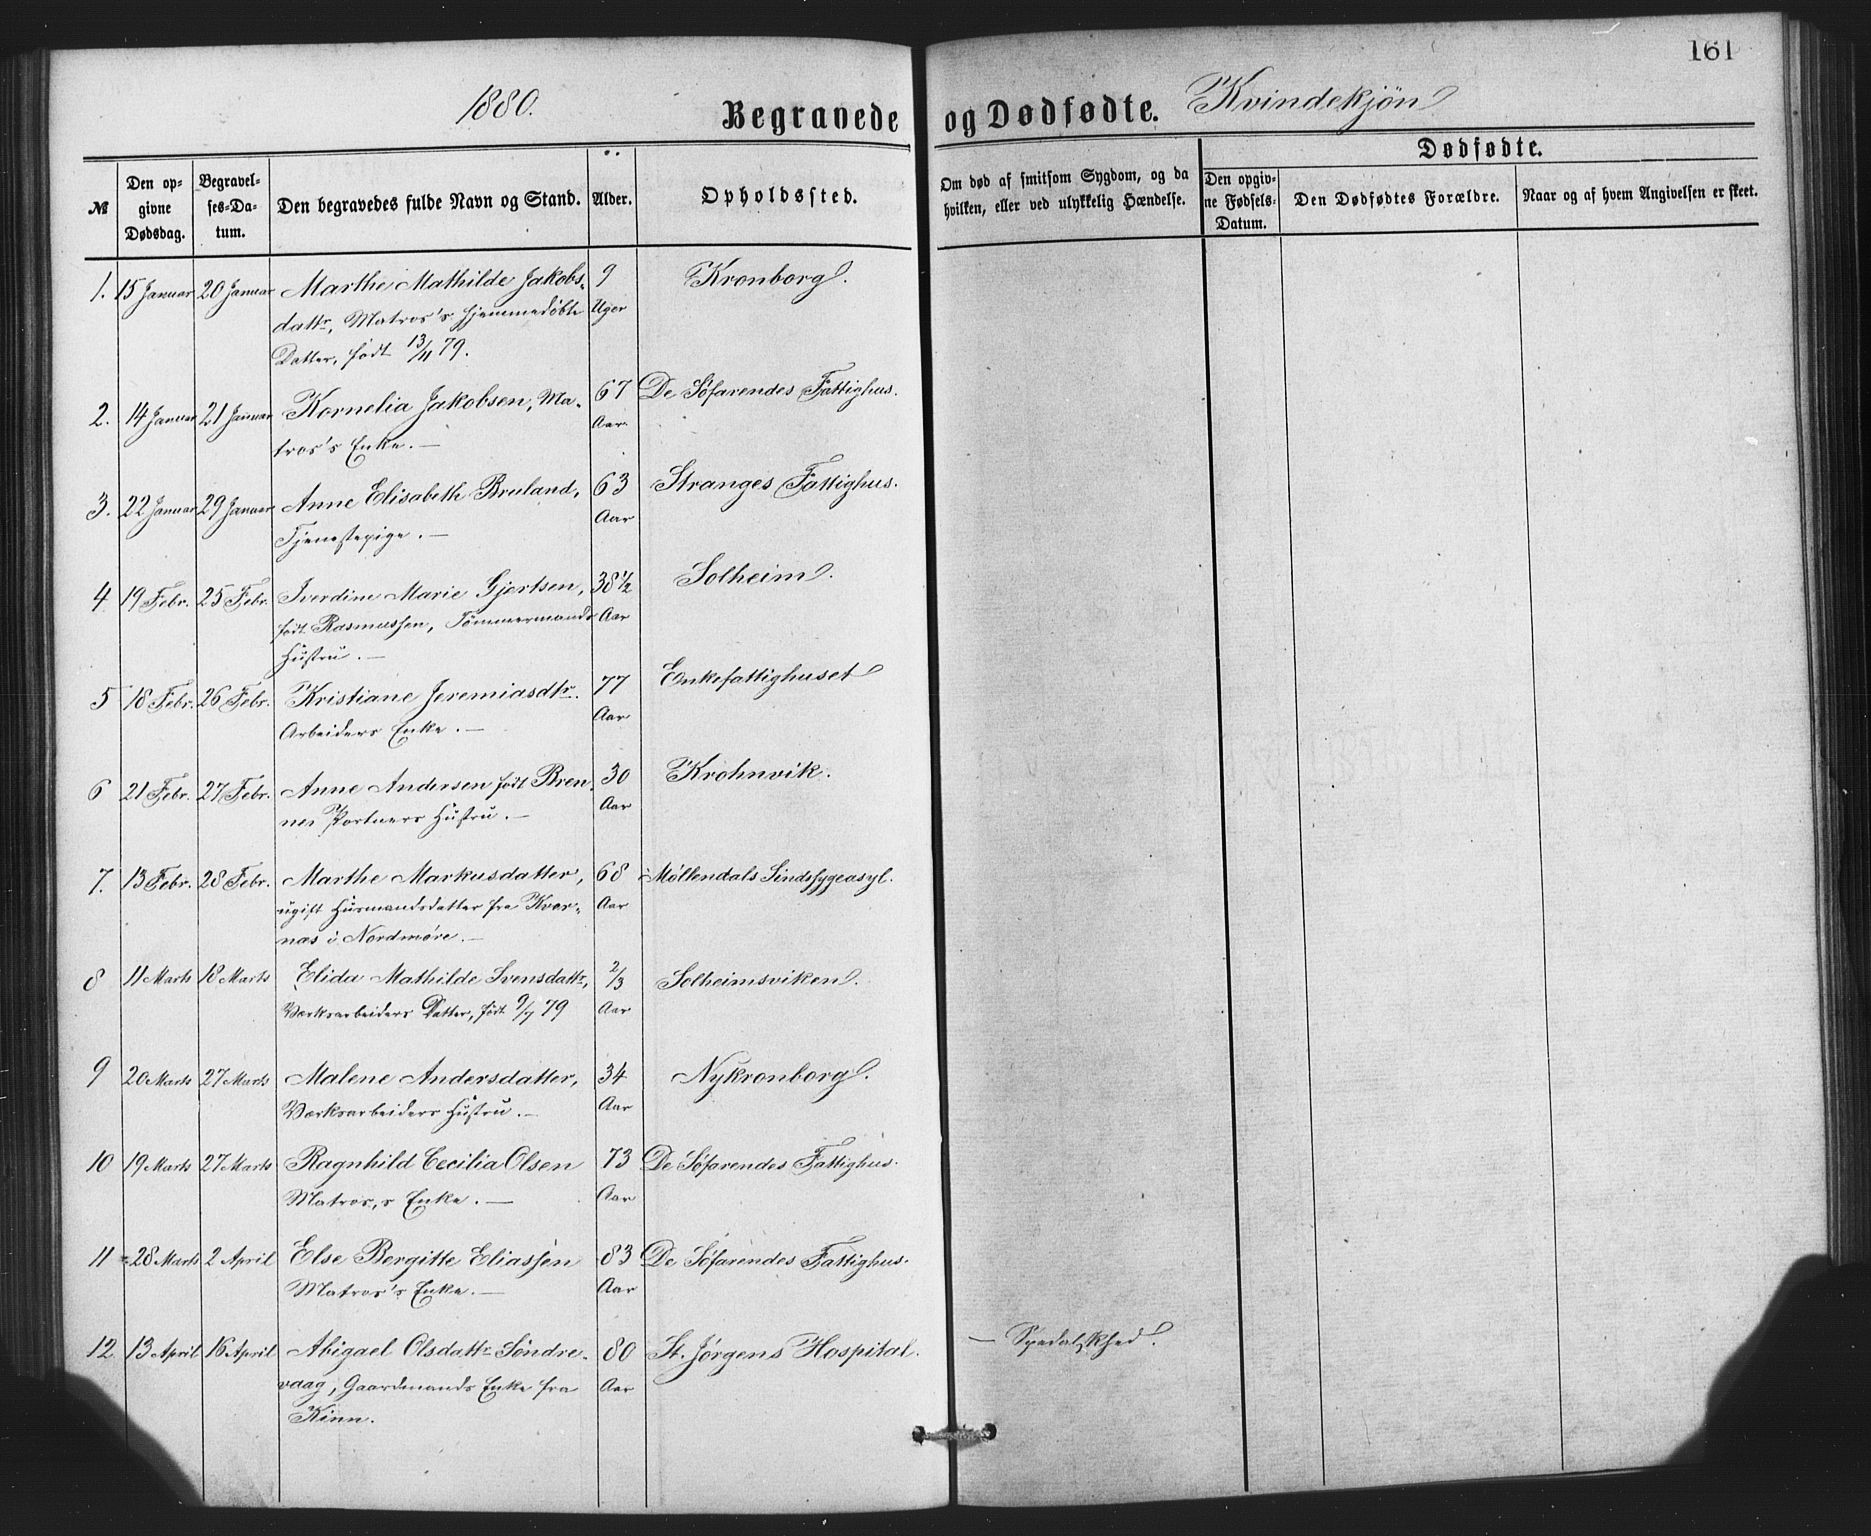 161
1880.
Begravede og Dødfødte. Kvindekjøn
№
Den opgivne Dødsdag.
Begravelses-Datum.
Den begravedes fulde Navn og Stand.
Alder.
Opholdssted.
Om død af smitsom Sygdom, og da hvilken, eller ved ulykkelig Hændelse.
Dødfødte.
Den opgivne Fødsels-Datum.
Den Dødfødtes Forældre.
Naar og af hvem Angivelsen er skeet.
1. 15 Januar 20 Januar Marthe Mathilde Jakobs- 9 Kronborg.
dattr, Matros's hjemmedøbte Uger
Datter, født 13/11 79.
2. 14 Januar 21 Januar Kornelia Jakobsen, Ma- 67 De Søfarendes Fattighus.
tros's Enke. — Aar.
3. 22 Januar 29 Januar Anne Elisabeth Bruland, 63 Stranges Fattighus.
Tjenestepige. — Aar
4 19 Febr. 25 Febr. Iverdine Marie Gjertsen, 38 1/2 Solheim.
født Rasmussen, Tømmermands Aar
Hustru. —
5 18 Febr. 26 Febr. Kristiane Jeremiasdtr. 77 Enkefattighuset
Arbeiders Enke. — Aar
6 21 Febr. 27 Febr. Anne Andersen født Bren- 30 Krohnvik.
nes Portners Hustru. — Aar
7. 13 Febr. 28 Febr. Marthe Markusdatter, 68 Møllendals Sindssygeasyl.
ugift Husmandsdatter fra Kvor- Aar
næs i Nordmøre. —
8 11 Marts 18 Marts Elida Mathilde Svensdattr, 2/3 Solheimsviken.
Værksarbeiders Datter, født 9/7 79 Aar
9 20 Marts 27 Marts Malene Andersdatter, 34 Nykronborg.
Værksarbeiders Hustru. — Aar
10 19 Marts 27 Marts Ragnhild Cecilia Olsen 73 De Søfarendes Fattighus.
Matros's Enke. — Aar
11 28 Marts 2 April Else Bergitte Eliassen 83 De Søfarendes Fattighus.
Matros's Enke. — Aar
12 13 April 16 April Abigael Olsdattr Søndre- 80 St. Jørgens Hospital. — Spedalskhed.
vaag, Gaardmands Enke fra Aar
Kinn.